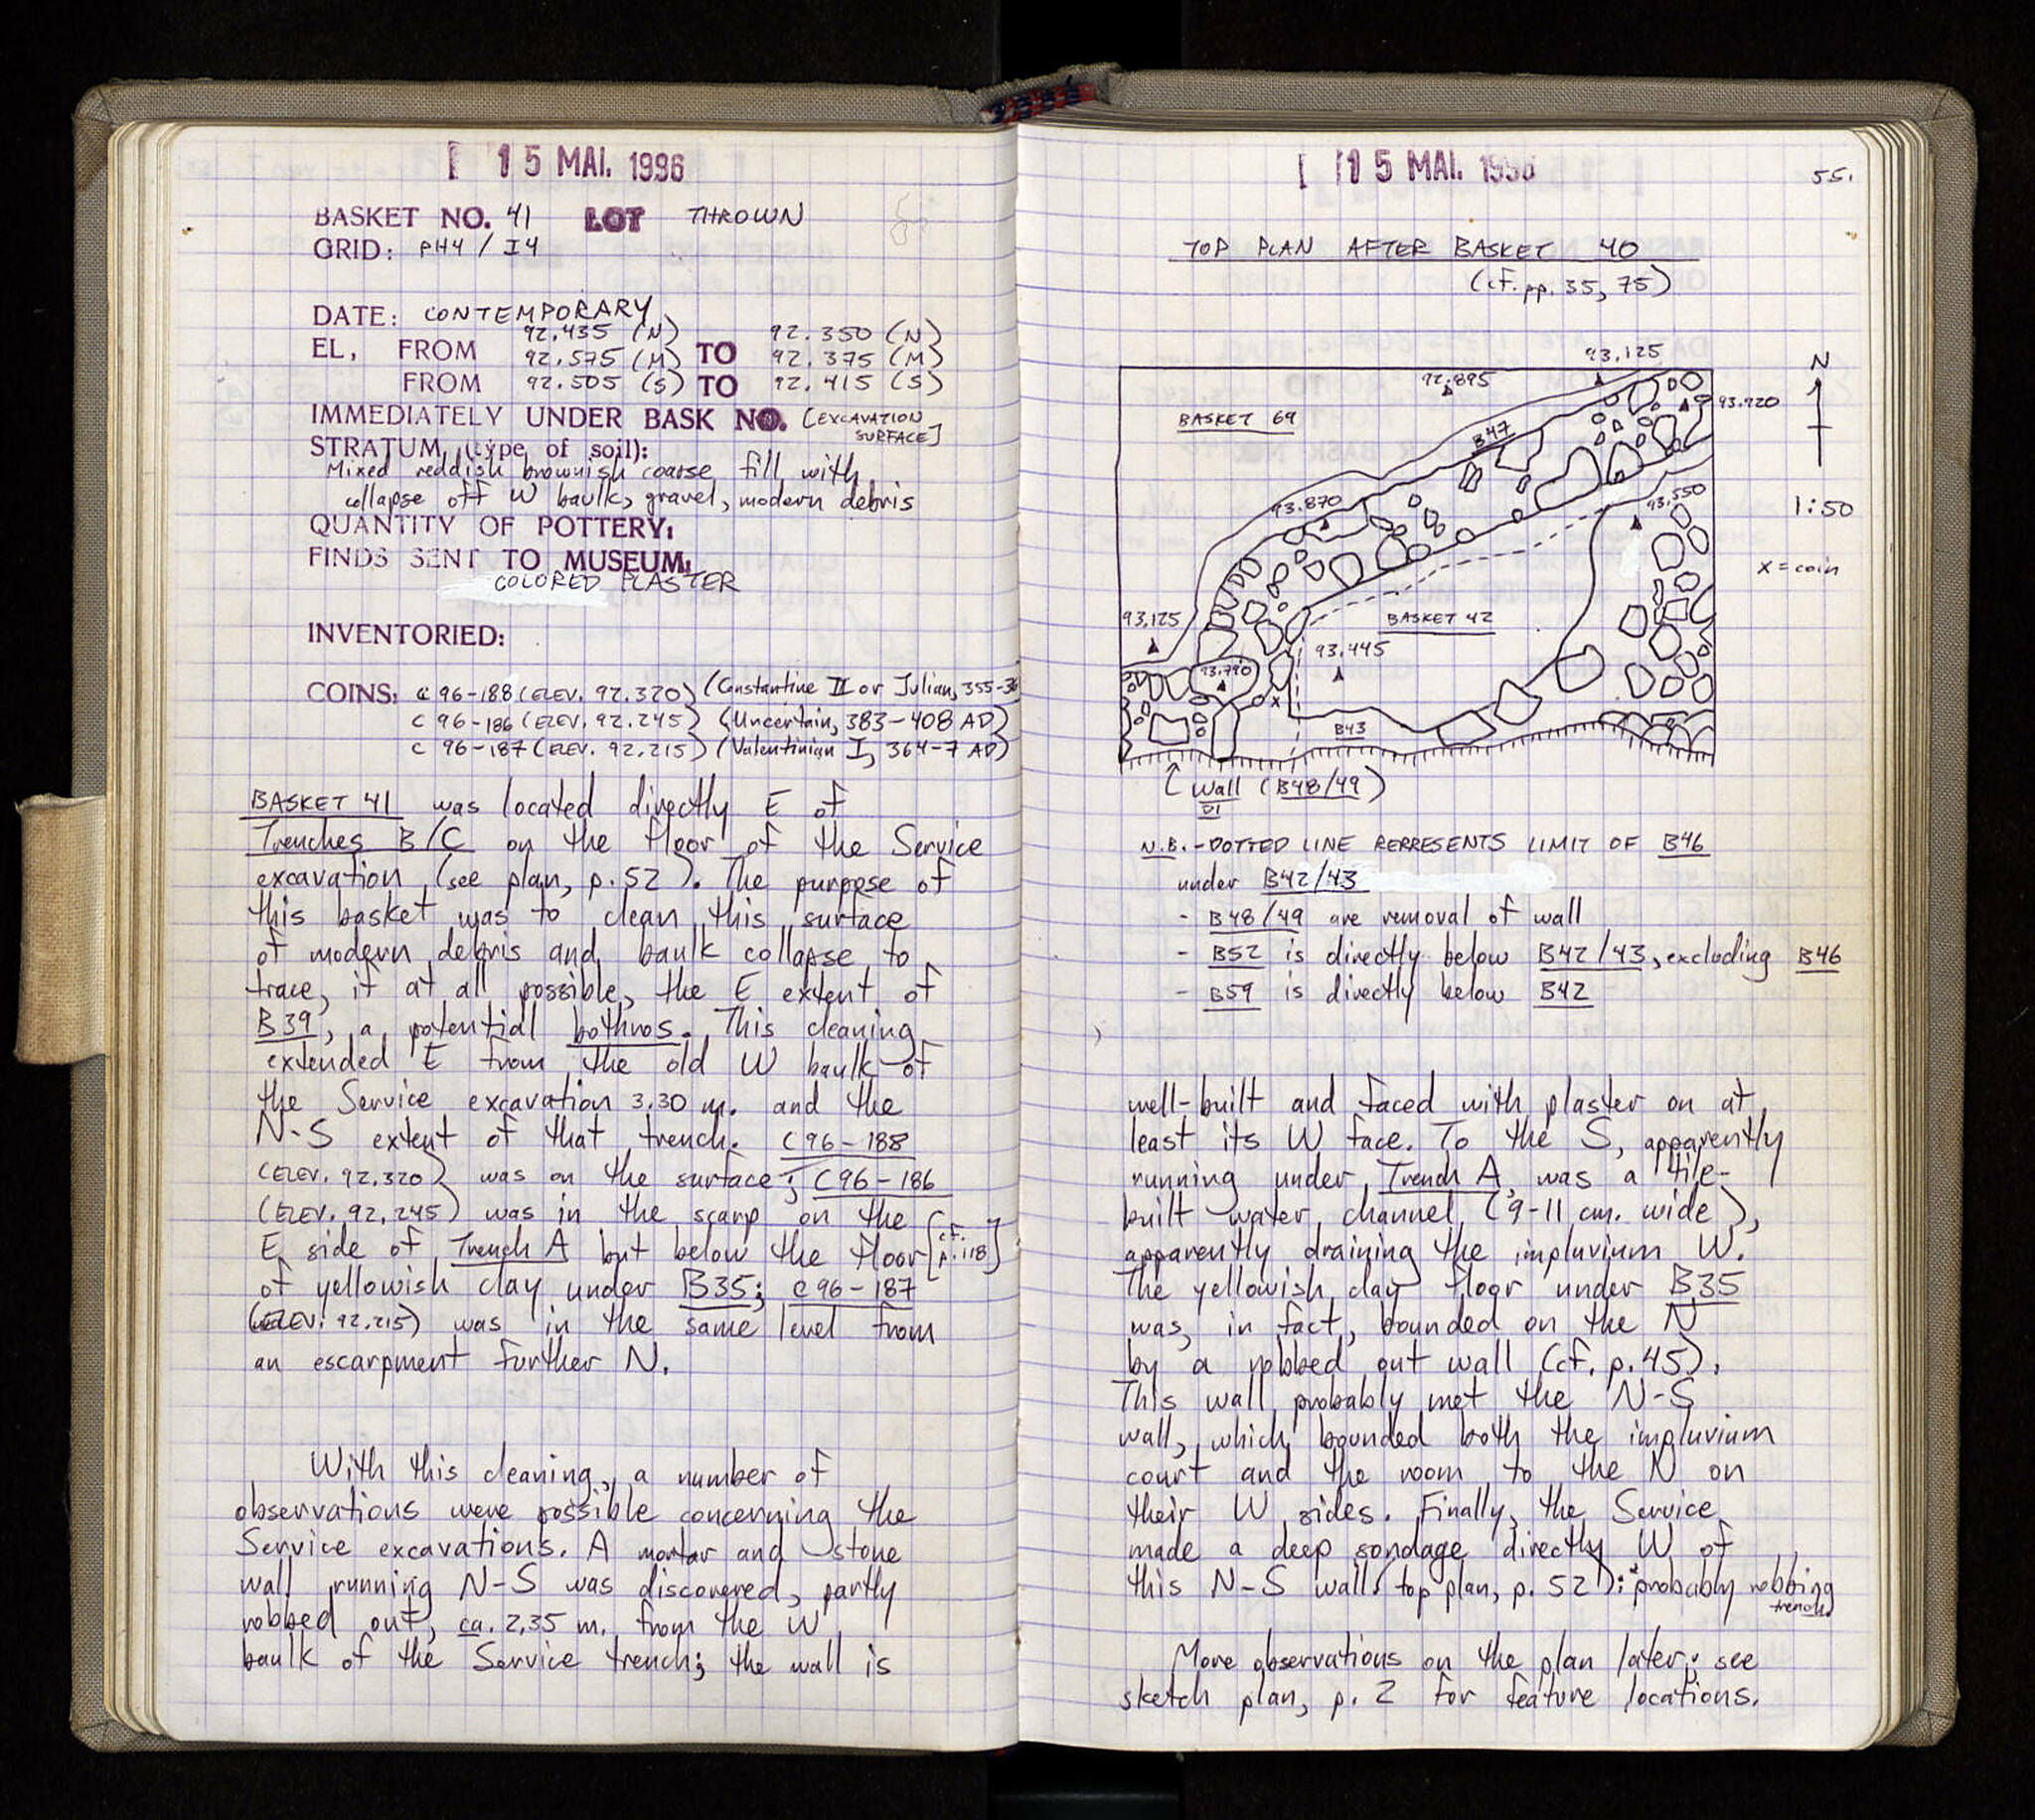 15 MAI. 1996
BASKET NO. 41 LOT THROWN
GRID: PH4 / I4
DATE: CONTEMPORARY
92.435 (N) 92.350 (N)
EL, FROM 92.575 (M) TO 92.375 (M)
FROM 92.505 (S) TO 92.415 (S)
IMMEDIATELY UNDER BASK NO. [EXCAVATION
SURFACE]
STRATUM (type of soil):
Mixed reddish brownish coarse fill with
collapse off W baulk, gravel, modern debris
QUANTITY OF POTTERY:
FINDS SENT TO MUSEUM:
COLORED PLASTER
INVENTORIED:
COINS: C 96-188 (ELEV. 92.320) (Constantine II or Julian, 355-36
C 96-186 (ELEV. 92.245) (Uncertain, 383-408 AD)
C 96-187 (ELEV. 92.215) (Valentinian I, 364-7 AD)
BASKET 41 was located directly E of
Trenches B/C on the floor of the Service
excavation (see plan, p. 52). The purpose of
this basket was to clean this surface
of modern debris and baulk collapse to
trace, if at all possible, the E extent of
B39, a potential bothros. This cleaning
extended E from the old W baulk of
the Service excavation 3.30 m. and the
N-S extent of that trench. C96-188
(ELEV. 92.320) was on the surface; C96-186
(ELEV. 92.245) was in the scarp on the
E side of Trench A but below the floor [cf. p.118]
of yellowish clay under B35; C96-187
(ELEV. 92.215) was in the same level from
an escarpment further N.
With this cleaning, a number of
observations were possible concerning the
Service excavations. A mortar and stone
wall running N-S was discovered, partly
robbed out, ca. 2.35 m. from the W
baulk of the Service trench; the wall is
15 MAI. 1996
55.
TOP PLAN AFTER BASKET 40
(cf. pp. 35, 75)
93.125
N
92.895
93.920
BASKET 69
B47
93.870
93.550
1:50
x = coin
93.125
BASKET 42
93.445
93.790
x
B43
Wall (B48/49)
D1
N.B. - DOTTED LINE REPRESENTS LIMIT OF B46
under B42/43
- B48/49 are removal of wall
- B52 is directly below B42/43, excluding B46
- B59 is directly below B42
well-built and faced with plaster on at
least its W face. To the S, apparently
running under Trench A, was a tile-
built water channel (9-11 cm. wide),
apparently draining the impluvium W.
The yellowish clay floor under B35
was, in fact, bounded on the N
by a robbed out wall (cf. p. 45).
This wall probably met the N-S
wall, which bounded both the impluvium
court and the room to the N on
their W sides. Finally, the Service
made a deep sondage directly W of
this N-S wall (top plan, p. 52): probably robbing
trench.
More observations on the plan later; see
sketch plan, p. 2 for feature locations.